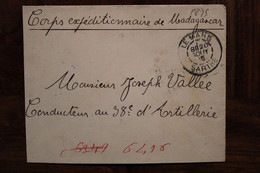 1895
Corps expéditionnaire de Madagascar
LE MANS
SARTHE
Monsieur Joseph Vallée
Conducteur au 38e d'Artillerie
6496